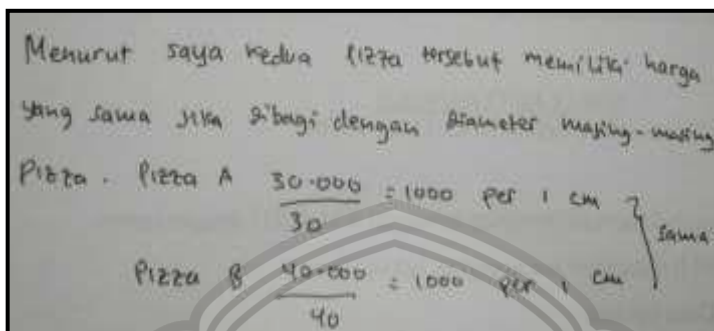 Menurut saya kedua Pizza tersebut memiliki harga
yang sama jika dibagi dengan diameter masing-masing
Pizza. Pizza A 30.000/30 = 1000 per 1 cm } sama
Pizza B 40.000/40 = 1000 per 1 cm